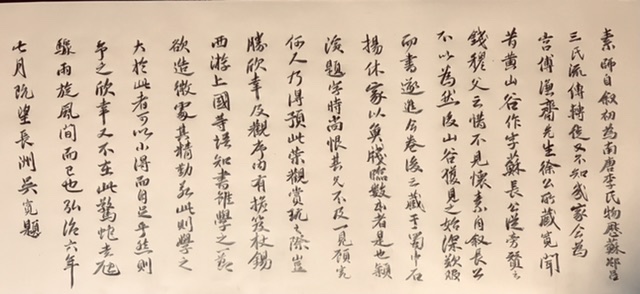 素師自叙初為南唐李氏物歷蘇邵呂
三氏流傳轉徙又不知幾家今為
宮傅謙齋先生徐公所藏寬聞
昔黃山谷作字蘇長公從旁贊之
錢穆父云惜不見懷素自叙長公
不以為然後山谷復見之始深歎服
而書遂進今卷後云藏于蜀中石
揚休家以魚牋臨數本者是也潁
濱題字時尚恨其久不及一見顧寬
何人乃得預此榮觀賞玩之際豈
勝欣幸及觀序內有擔笈杖錫
西游上國等語知書雖學之藝
欲造微處其精勤若此則學之
大於此者可以小得而自足乎然則
予之欣幸又不在此驚蛇走虺
驟雨旋風間而已也弘治六年
七月既望長洲吳寬題